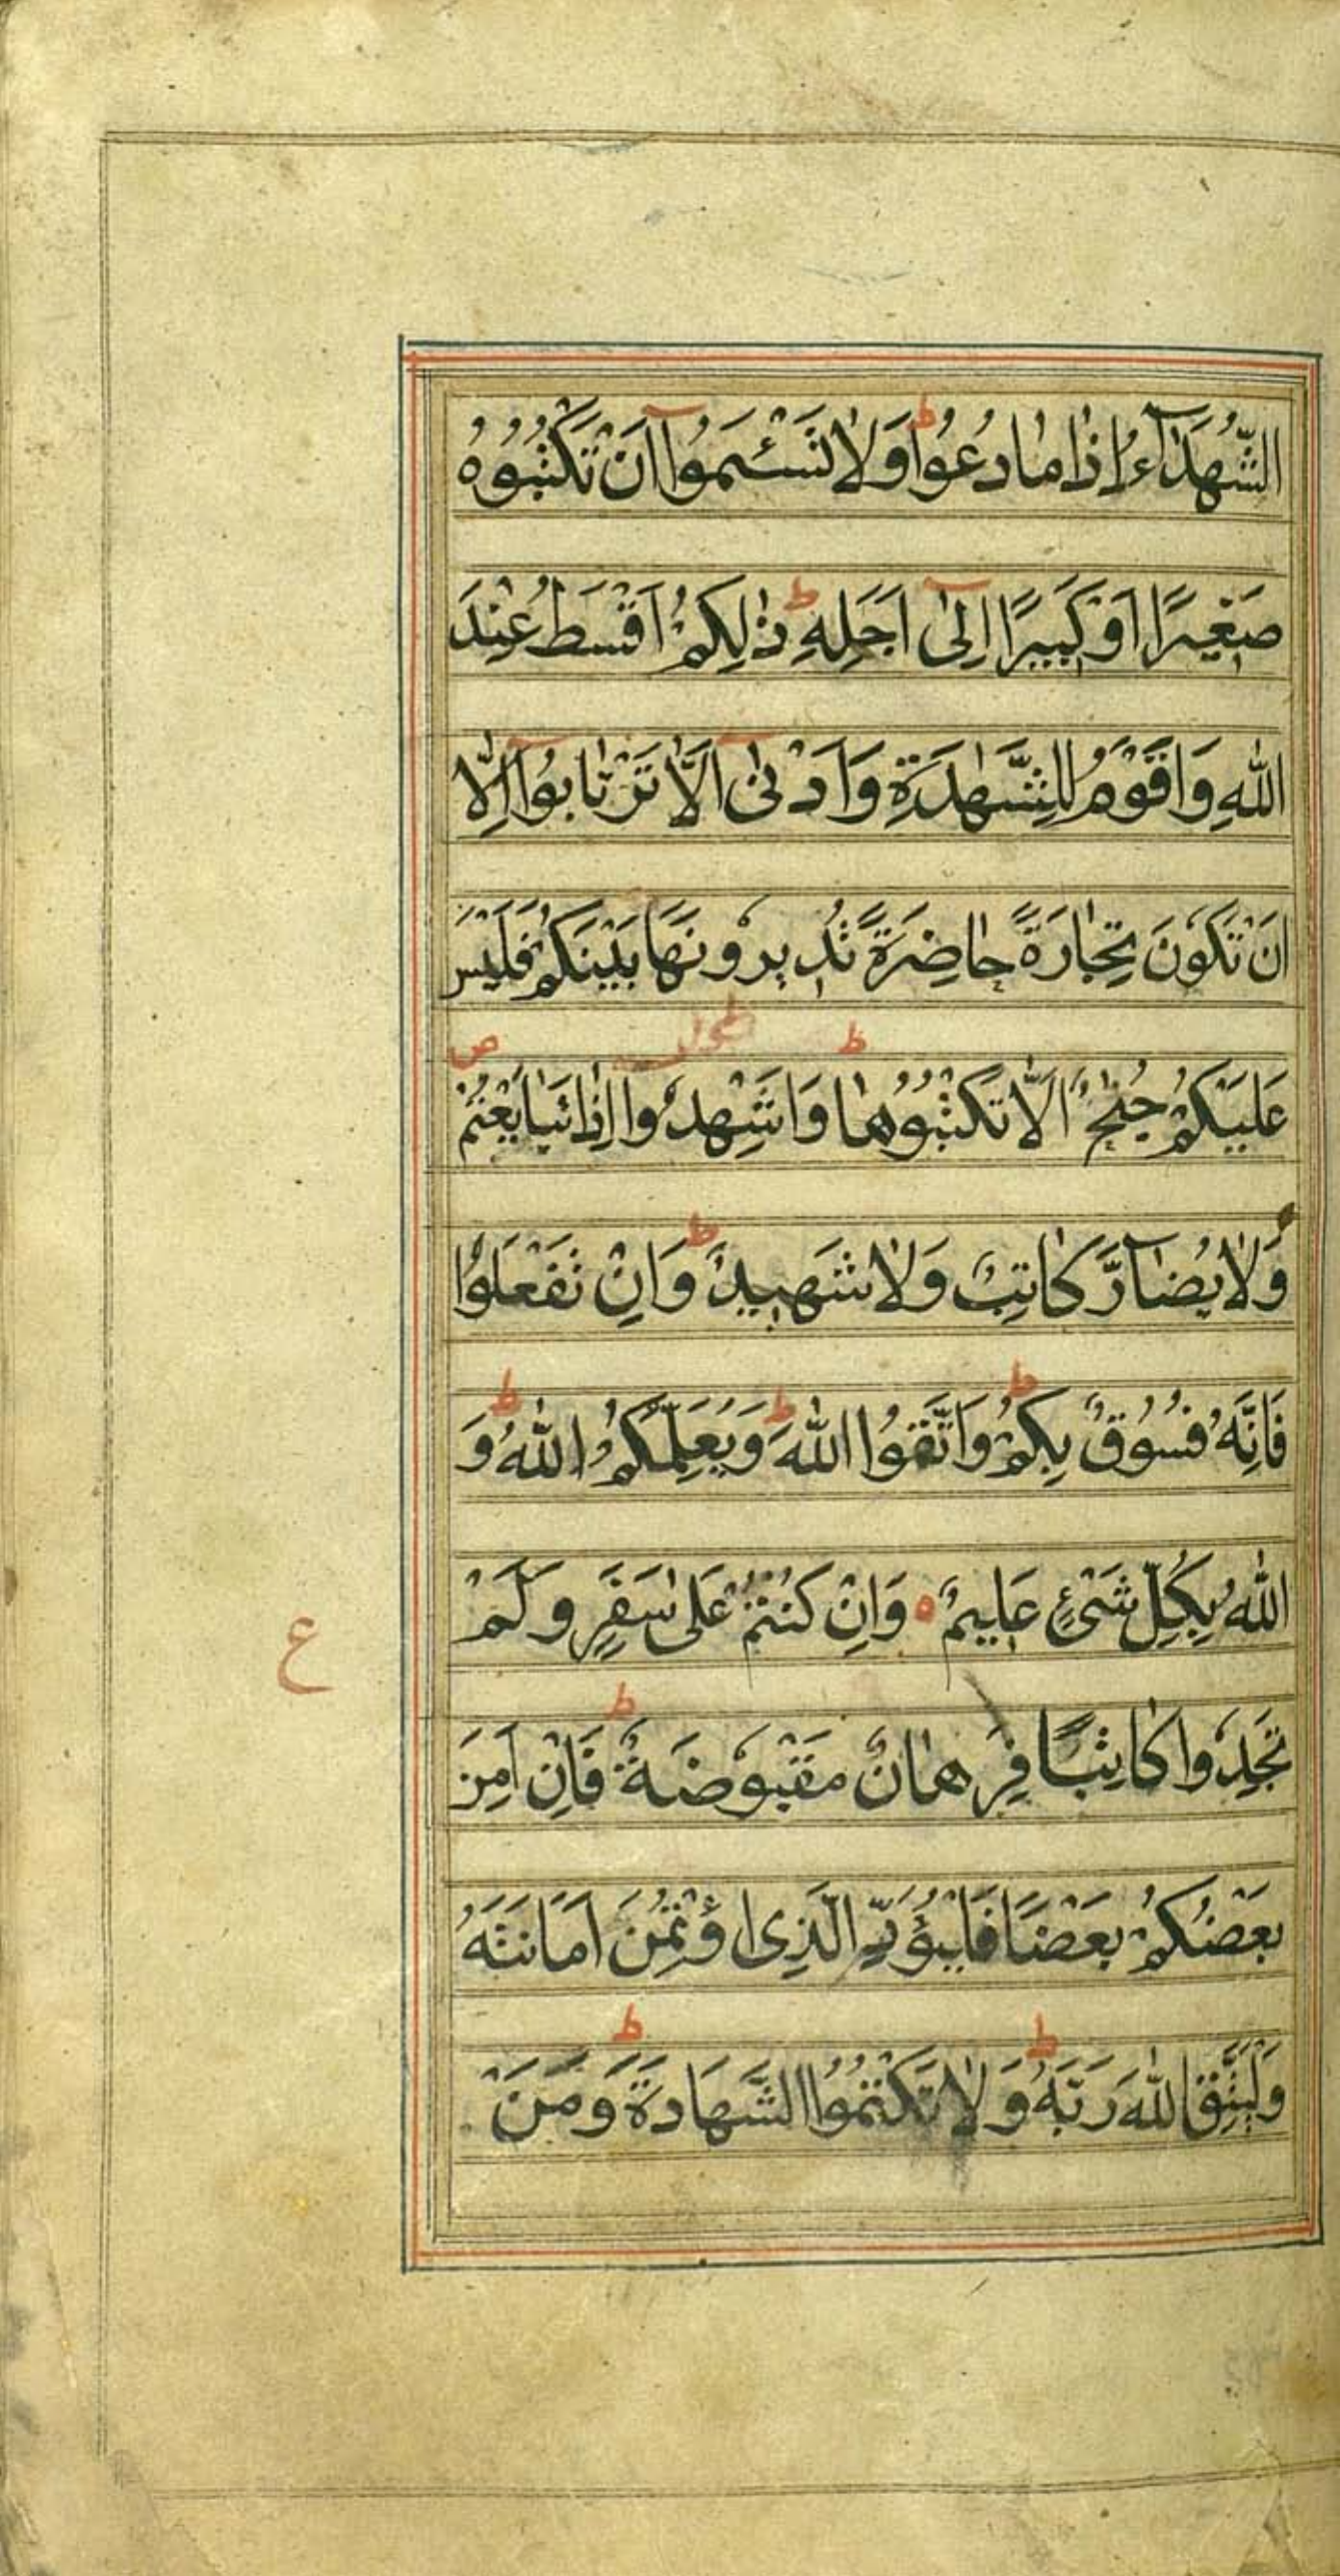 الشُّهَدَآءُ اِذَا مَا دُعُوْا ؕ وَلَا تَسْـَٔمُوْٓا اَنْ تَكْتُبُوْهُ
صَغِيْرًا اَوْ كَبِيْرًا اِلٰٓى اَجَلِهٖ ؕ ذٰلِكُمْ اَقْسَطُ عِنْدَ
اللّٰهِ وَاَقْوَمُ لِلشَّهٰدَةِ وَاَدْنٰىٓ اَلَّا تَرْتَابُوْٓا اِلَّآ
اَنْ تَكُوْنَ تِجَارَةً حَاضِرَةً تُدِيْرُوْنَهَا بَيْنَكُمْ فَلَيْسَ
عَلَيْكُمْ جُنَاحٌ اَلَّا تَكْتُبُوْهَا ؕ وَاَشْهِدُوْا اِذَا تَبَايَعْتُمْ ص
وَلَا يُضَآرَّ كَاتِبٌ وَلَا شَهِيْدٌ ؕ وَاِنْ تَفْعَلُوْا
فَاِنَّهٗ فُسُوْقٌ بِكُمْ ؕ وَاتَّقُوا اللّٰهَ ؕ وَيُعَلِّمُكُمُ اللّٰهُ ؕ وَ
اللّٰهُ بِكُلِّ شَىْءٍ عَلِيْمٌ ه وَاِنْ كُنْتُمْ عَلٰى سَفَرٍ وَلَمْ
ع
تَجِدُوْا كَاتِبًا فَرِهَانٌ مَقْبُوْضَةٌ ؕ فَاِنْ اَمِنَ
بَعْضُكُمْ بَعْضًا فَلْيُؤَدِّ الَّذِى اؤْتُمِنَ اَمَانَتَهٗ
وَلْيَتَّقِ اللّٰهَ رَبَّهٗ ؕ وَلَا تَكْتُمُوا الشَّهَادَةَ ؕ وَمَنْ